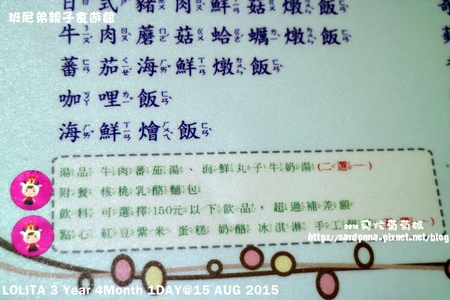 班尼弟親子食遊館
日式豬肉菇菇燉飯
牛肉蘑菇蛤蠣燉飯
蕃茄海鮮燉飯
咖哩飯
海鮮燴飯
湯品 牛肉蕃茄湯、海鮮丸子牛奶湯(二選一)
附餐 核桃乳酪麵包
飲料 可選擇150元以下飲品，超過補差額
點心 紅豆紫米 蛋糕 奶酪 冰淇淋 手工餅
http://sardonna.pixnet.net/blog
LOLITA 3 Year 4Month 1DAY@15 AUG 2015